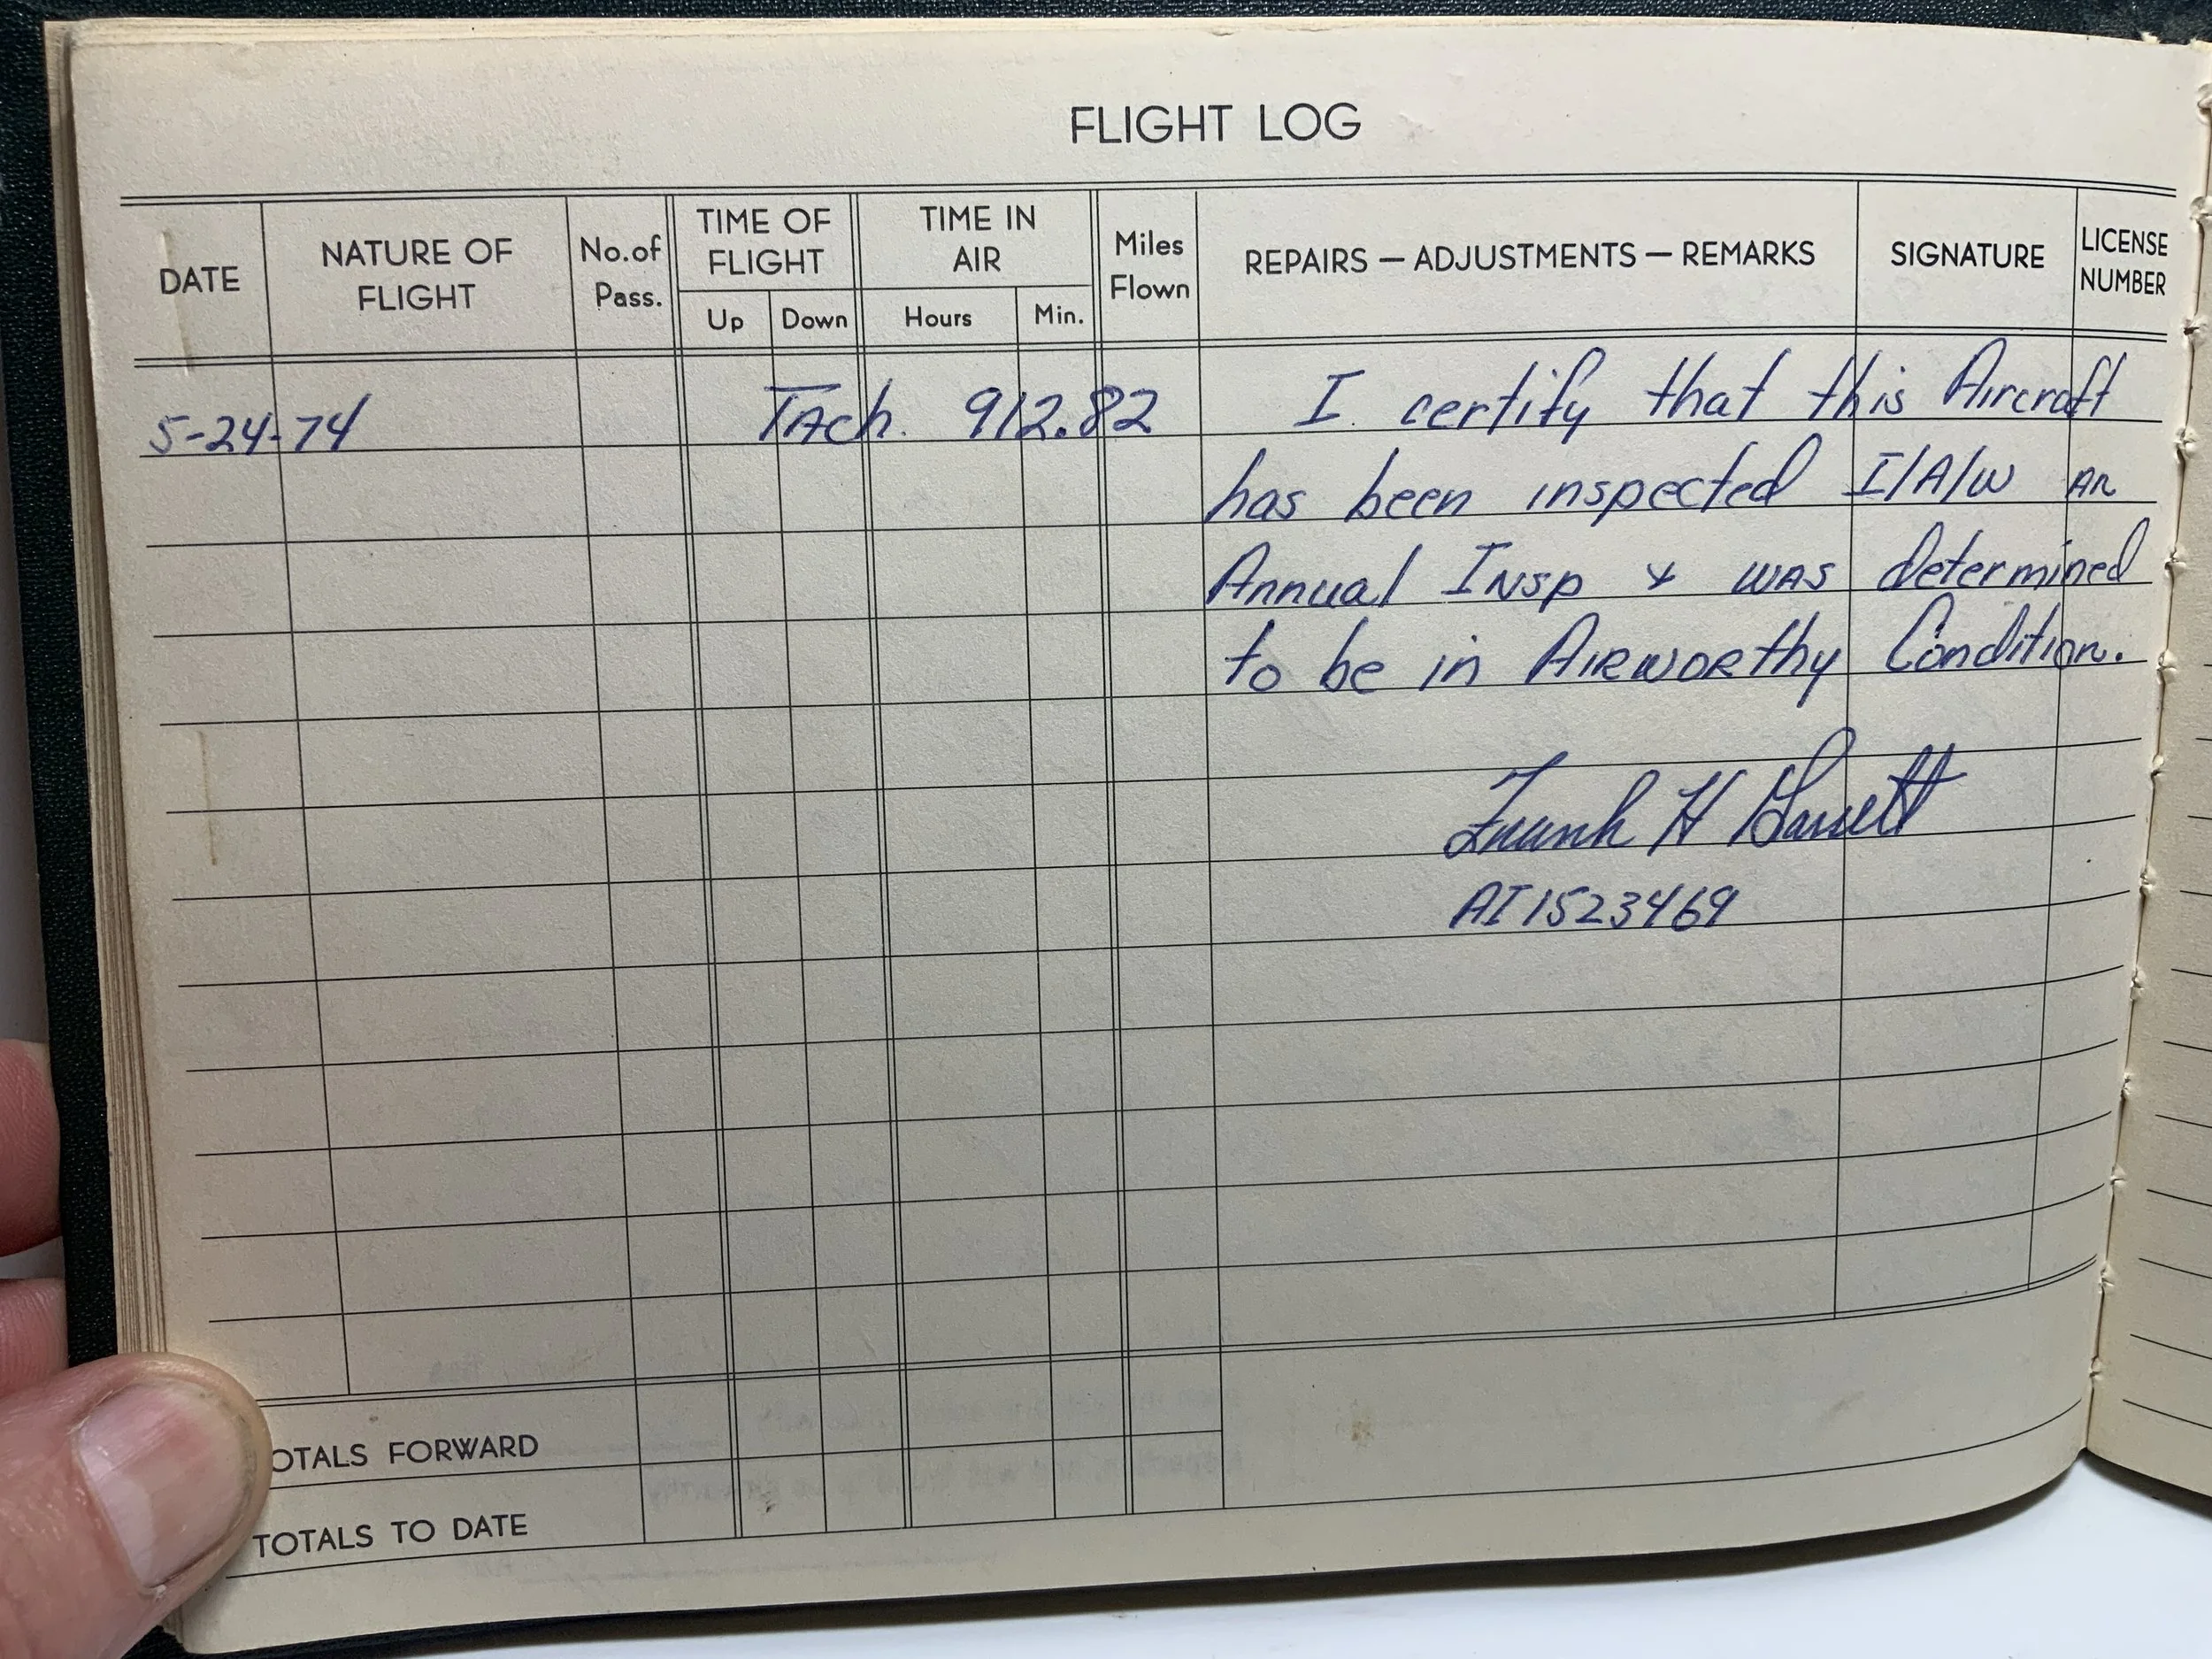 FLIGHT LOG
DATE NATURE OF FLIGHT No. of Pass. TIME OF FLIGHT TIME IN AIR Miles Flown REPAIRS — ADJUSTMENTS — REMARKS SIGNATURE LICENSE NUMBER
Up Down Hours Min.
5-24-74 TAch. 912.82 I certify that this Aircraft
has been inspected I/A/W an
Annual Insp & was determined
to be in Airworthy Condition.
Frank H
AI 1523469
OTALS FORWARD
TOTALS TO DATE